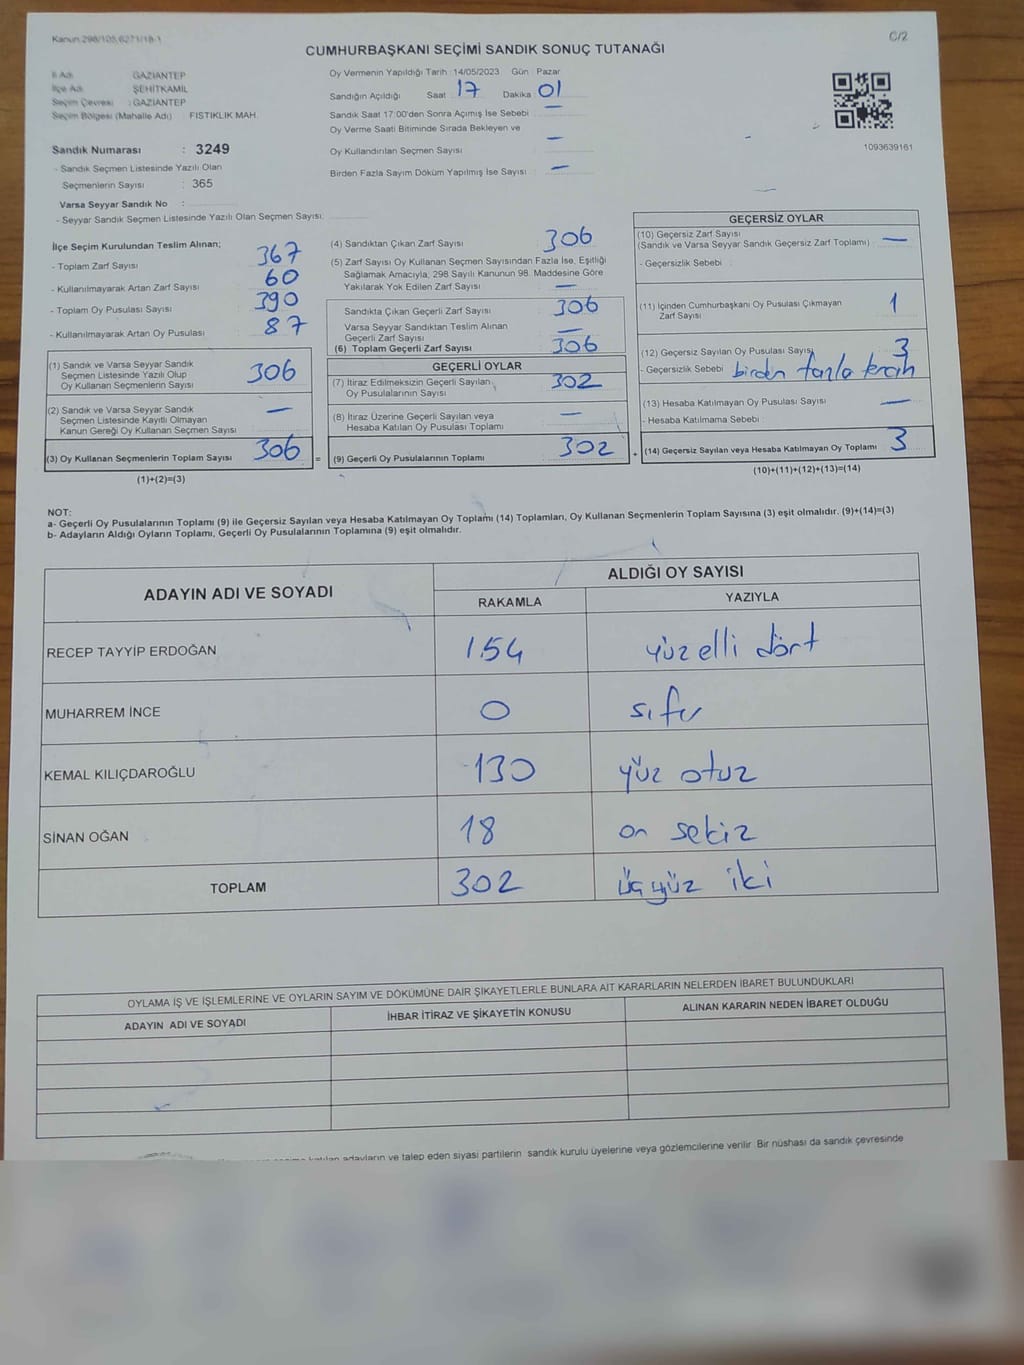 Kanun 298/105,6271/18-1
C/2
CUMHURBAŞKANI SEÇİMİ SANDIK SONUÇ TUTANAĞI
İl Adı GAZİANTEP
İlçe Adı ŞEHİTKAMİL
Seçim Çevresi : GAZİANTEP
Seçim Bölgesi (Mahalle Adı) FISTIKLIK MAH.
Sandık Numarası : 3249
- Sandık Seçmen Listesinde Yazılı Olan
Seçmenlerin Sayısı : 365
Varsa Seyyar Sandık No :
- Seyyar Sandık Seçmen Listesinde Yazılı Olan Seçmen Sayısı:
Oy Vermenin Yapıldığı Tarih : 14/05/2023 Gün : Pazar
Sandığın Açıldığı Saat 17 Dakika 01
Sandık Saat 17:00'den Sonra Açımış İse Sebebi : —
Oy Verme Saati Bitiminde Sırada Bekleyen ve
Oy Kullandırılan Seçmen Sayısı : —
Birden Fazla Sayım Döküm Yapılmış İse Sayısı : —
1093639161
İlçe Seçim Kurulundan Teslim Alınan;
- Toplam Zarf Sayısı : 367
- Kullanılmayarak Artan Zarf Sayısı : 60
- Toplam Oy Pusulası Sayısı : 390
- Kullanılmayarak Artan Oy Pusulası : 87
(1) Sandık ve Varsa Seyyar Sandık
Seçmen Listesinde Yazılı Olup
Oy Kullanan Seçmenlerin Sayısı 306
(2) Sandık ve Varsa Seyyar Sandık
Seçmen Listesinde Kayıtlı Olmayan
Kanun Gereği Oy Kullanan Seçmen Sayısı —
(3) Oy Kullanan Seçmenlerin Toplam Sayısı 306
(1)+(2)=(3)
=
(4) Sandıktan Çıkan Zarf Sayısı : 306
(5) Zarf Sayısı Oy Kullanan Seçmen Sayısından Fazla İse, Eşitliği
Sağlamak Amacıyla, 298 Sayılı Kanunun 98. Maddesine Göre
Yakılarak Yok Edilen Zarf Sayısı : —
Sandıkta Çıkan Geçerli Zarf Sayısı : 306
Varsa Seyyar Sandıktan Teslim Alınan
Geçerli Zarf Sayısı : —
(6) Toplam Geçerli Zarf Sayısı : 306
GEÇERLİ OYLAR
(7) İtiraz Edilmeksizin Geçerli Sayılan
Oy Pusulalarının Sayısı : 302
(8) İtiraz Üzerine Geçerli Sayılan veya
Hesaba Katılan Oy Pusulası Toplamı : —
(9) Geçerli Oy Pusulalarının Toplamı 302
+
GEÇERSİZ OYLAR
(10) Geçersiz Zarf Sayısı
(Sandık ve Varsa Seyyar Sandık Geçersiz Zarf Toplamı) : —
- Geçersizlik Sebebi :
(11) İçinden Cumhurbaşkanı Oy Pusulası Çıkmayan
Zarf Sayısı 1
(12) Geçersiz Sayılan Oy Pusulası Sayısı 3
- Geçersizlik Sebebi birden fazla tercih
(13) Hesaba Katılmayan Oy Pusulası Sayısı —
- Hesaba Katılmama Sebebi :
(14) Geçersiz Sayılan veya Hesaba Katılmayan Oy Toplamı : 3
(10)+(11)+(12)+(13)=(14)
NOT:
a- Geçerli Oy Pusulalarının Toplamı (9) ile Geçersiz Sayılan veya Hesaba Katılmayan Oy Toplamı (14) Toplamları, Oy Kullanan Seçmenlerin Toplam Sayısına (3) eşit olmalıdır. (9)+(14)=(3)
b- Adayların Aldığı Oyların Toplamı, Geçerli Oy Pusulalarının Toplamına (9) eşit olmalıdır.
ADAYIN ADI VE SOYADI ALDIĞI OY SAYISI
RAKAMLA YAZIYLA
RECEP TAYYİP ERDOĞAN 154 yüz elli dört
MUHARREM İNCE 0 sıfır
KEMAL KILIÇDAROĞLU 130 yüz otuz
SİNAN OĞAN 18 on sekiz
TOPLAM 302 üçyüz iki
OYLAMA İŞ VE İŞLEMLERİNE VE OYLARIN SAYIM VE DÖKÜMÜNE DAİR ŞİKAYETLERLE BUNLARA AİT KARARLARIN NELERDEN İBARET BULUNDUKLARI
ADAYIN ADI VE SOYADI İHBAR İTİRAZ VE ŞİKAYETİN KONUSU ALINAN KARARIN NEDEN İBARET OLDUĞU
katılan adayların ve talep eden siyasi partilerin sandık kurulu üyelerine veya gözlemcilerine verilir. Bir nüshası da sandık çevresinde